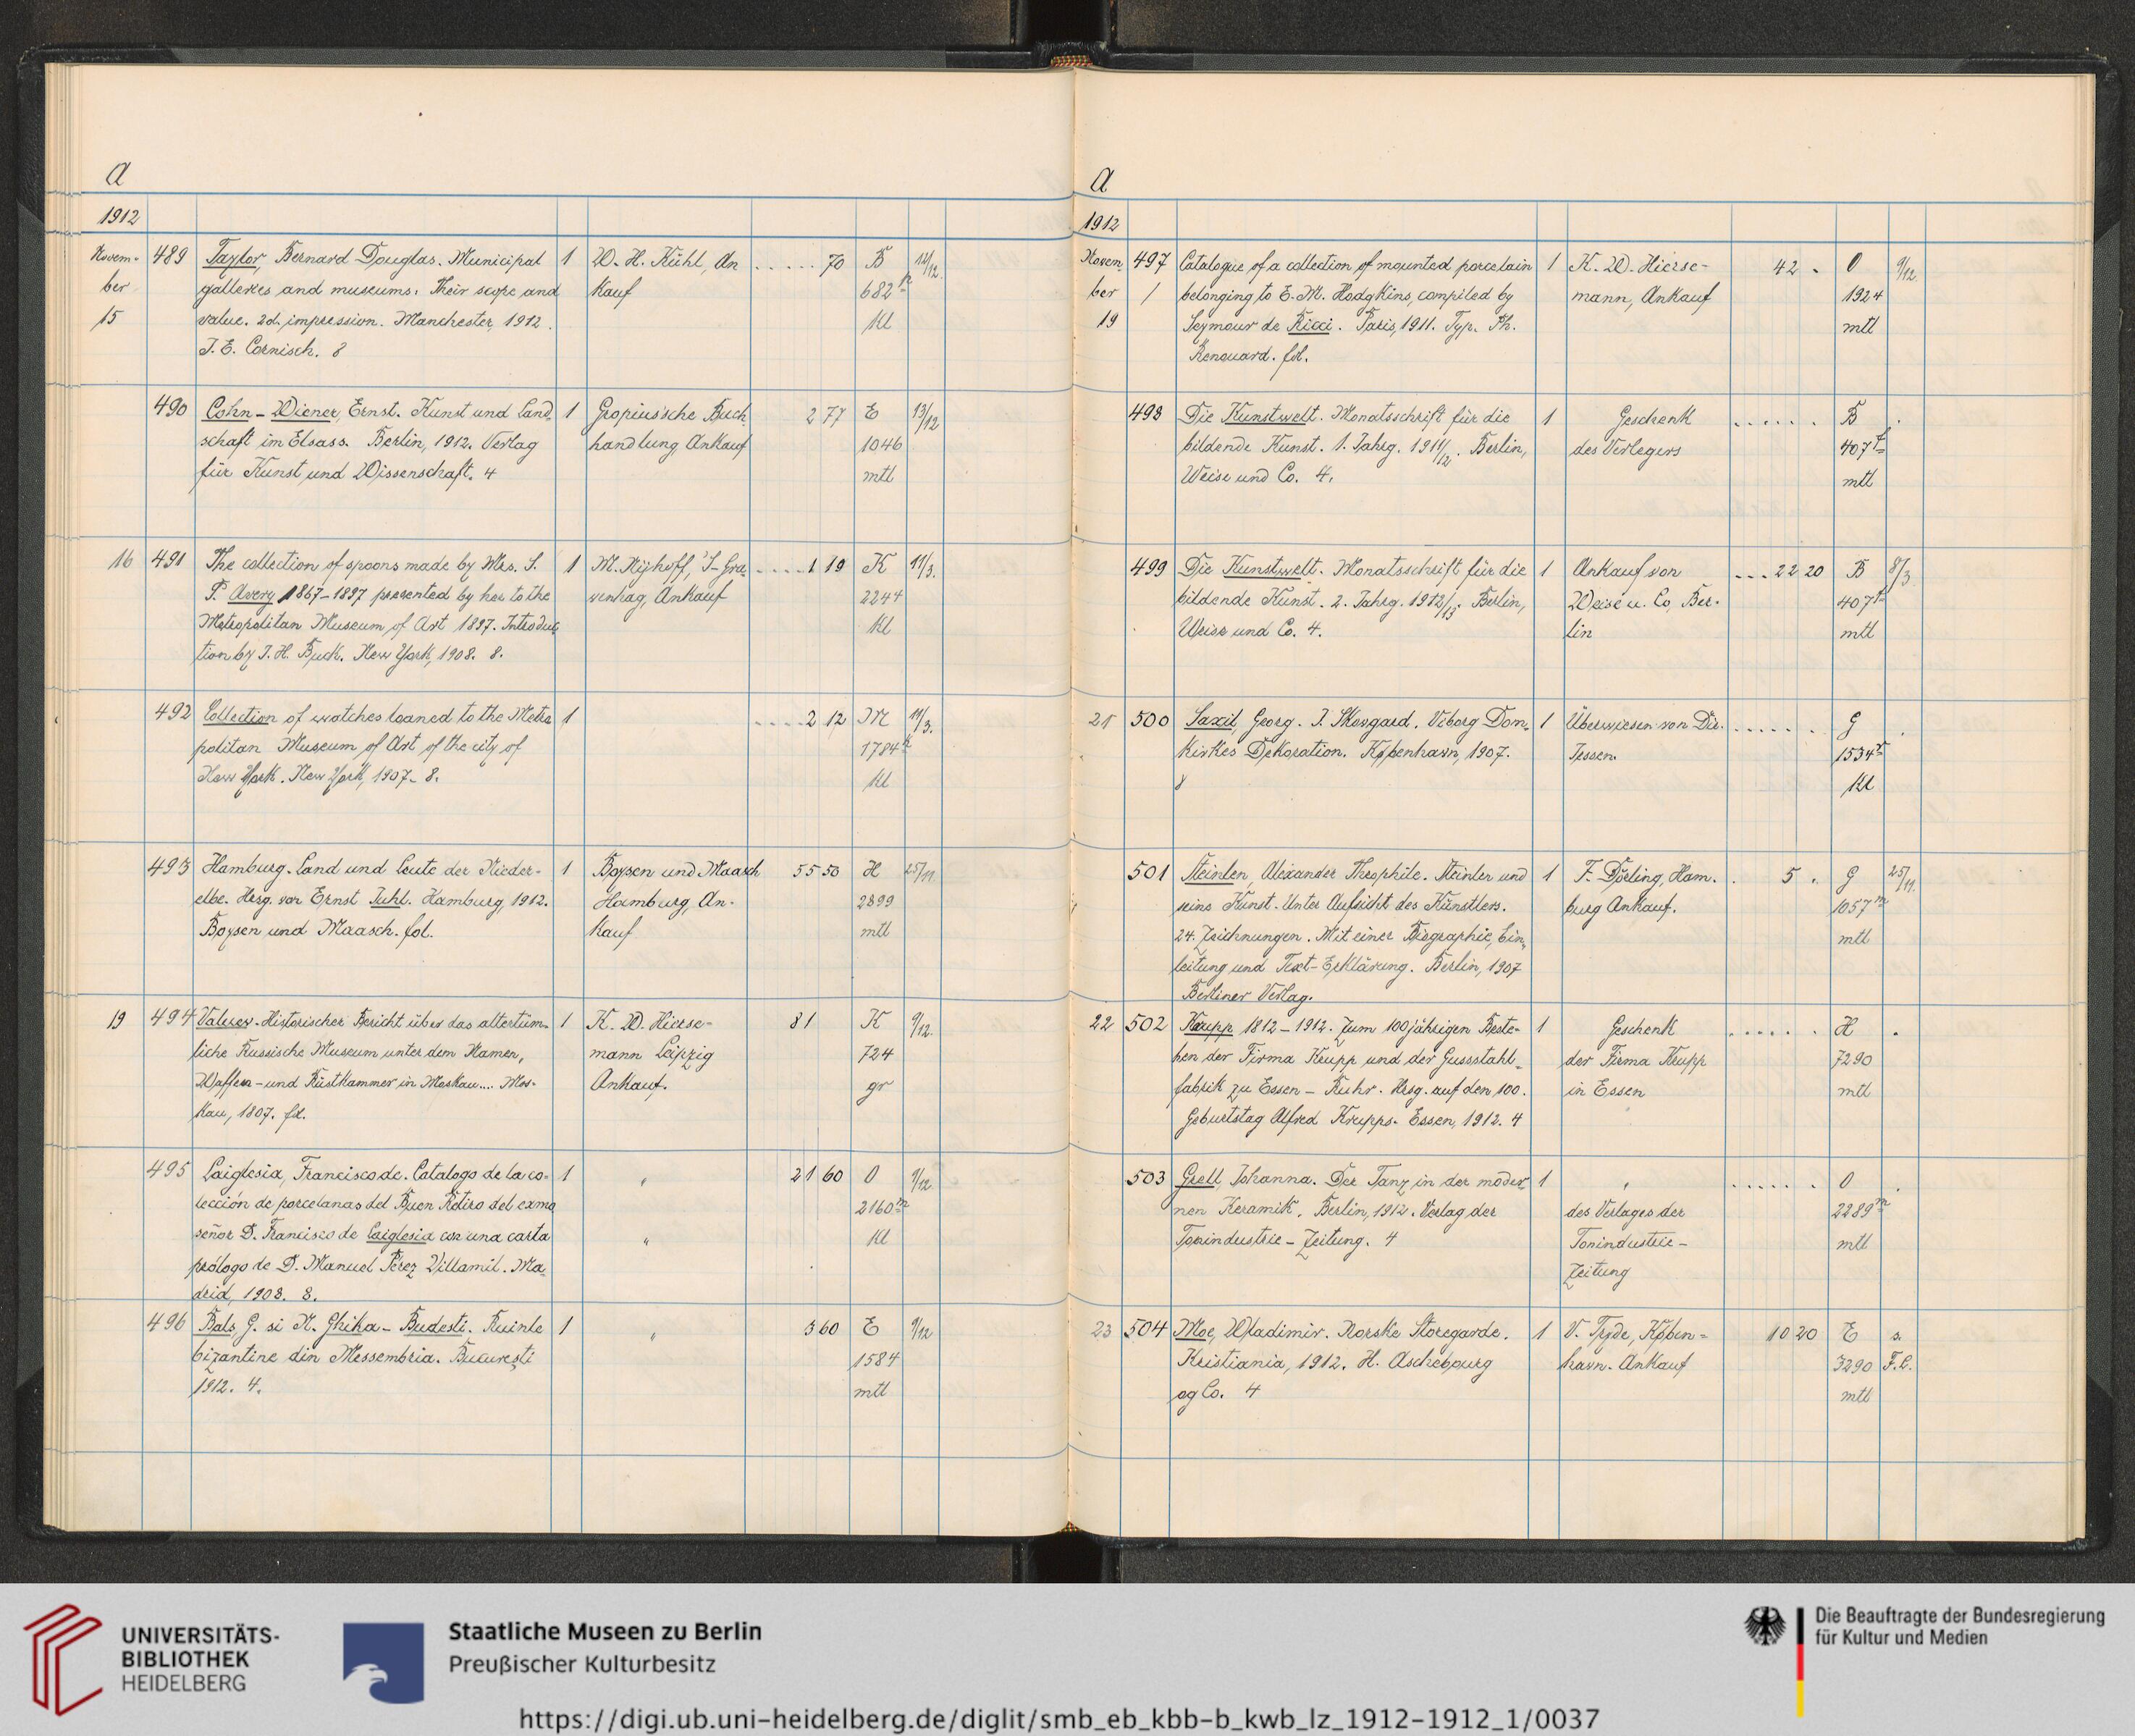 a
1912
Novem-
ber
15
489 Taylor, Bernard Douglas. Municipal 1 W. H. Kühl, An ...... 70 B 12/12.
galleries and museums. Their scope and kauf 682n
value. 2d. impression. Manchester, 1912. Kl
J. E. Cornisch. 8
490 Cohn-Wiener, Ernst. Kunst und Land- 1 Gropius'sche Buch- 2 77 E 13/12
schaft im Elsass. Berlin, 1912. Verlag handlung Ankauf 1046
für Kunst und Wissenschaft. 4 mtl
16 491 The collection of spoons made by Mrs. S. 1 M. Nijhoff, 'S-Gra- .... 1 19 K 11/3.
P. Avery 1867-1897 presented by her to the venhag, Ankauf 2244
Metropolitan Museum of Art 1897. Introduc- Kl
tion by J. H. Buck. New York, 1908. 8.
492 Collection of watches loaned to the Metro 1 .... 2 12 M 11/3.
politan Museum of Art of the city of 1784
New York. New York, 1907. 8. Kl
493 Hamburg. Land und Leute der Nieder- 1 Boysen und Maasch 55 50 H 25/11
elbe. Hrsg. von Ernst Juhl. Hamburg, 1912. Hamburg, An- 2899
Boysen und Maasch. fol. kauf mtl
19 494 Valuev. Historischer Bericht über das altertüm- 1 K. W. Hierse- 81 K 9/12.
liche Russische Museum unter dem Namen, mann Leipzig 724
Waffen- und Rüstkammer in Moskau.... Mos- Ankauf. gr
kau, 1807. fol.
495 Laiglesia, Francisco de. Catalogo de la co- 1 " 21 60 O 9/12
lección de porcelanas del Buen Retiro del exmo 2160m
señor D. Francisco de Laiglesia con una carta " Kl
prólogo de D. Manuel Pérez Villamil. Ma-
drid, 1908. 8.
496 Bals, G. si N. Ghika-Budesti. Ruinle 1 " 3 60 E 9/12
bizantine din Messembria. București 1584
1912. 4. mtl
a
1912
Novem
ber
19
497 Catalogue of a collection of mounted porcelain 1 K. W. Hierse- 42 . O 9/12.
/ belonging to E. M. Hodgkins, compiled by mann, Ankauf 1924
Seymour de Ricci. Paris, 1911. Typ. Ph. mtl
Renouard. fol.
498 Die Kunstwelt. Monatsschrift für die 1 Geschenk ...... B .
bildende Kunst. 1. Jahrg. 1911/12. Berlin, des Verlegers 407t
Weise und Co. 4. mtl
499 Die Kunstwelt. Monatsschrift für die 1 Ankauf von ... 22 20 B 8/3
bildende Kunst. 2. Jahrg. 1912/13. Berlin, Weise u. Co, Ber- 407t
Weise und Co. 4. lin mtl
21 500 Saxil, Georg. J. Skovgard. Viborg Dom- 1 Überwiesen von Dir. ...... G .
kirkes Dekoration. København, 1907. Jessen. 1534r
8 Kl
501 Steinlen, Alexander Théophile. Steinlen und 1 F. Dörling, Ham- . 5 . G 25/11.
seine Kunst. Unter Aufsicht des Künstlers. burg Ankauf. 1057m
24. Zeichnungen. Mit einer Biographie, Ein- mtl
leitung und Text-Erklärung. Berlin, 1907
Berliner Verlag.
22 502 Krupp 1812-1912. Zum 100jährigen Beste- 1 Geschenk ...... H .
hen der Firma Krupp und der Gussstahl- der Firma Krupp 7290
fabrik zu Essen-Ruhr. Hrsg. auf den 100. in Essen mtl
Geburtstag Alfred Krupps. Essen, 1912. 4
503 Grell, Johanna. Der Tanz in der moder- 1 " ...... O .
nen Keramik. Berlin, 1912. Verlag der des Verlages der 2289m
Tonindustrie-Zeitung. 4 Tonindustrie- mtl
Zeitung
23 504 Moe, Wladimir. Norske Storegarde. 1 V. Tryde, Køben= 10 20 E s.
Kristiania, 1912. H. Aschehpurg havn. Ankauf 3290 F.L.
og Co. 4 mtl
UNIVERSITÄTS-
BIBLIOTHEK
HEIDELBERG
Staatliche Museen zu Berlin
Preußischer Kulturbesitz
Die Beauftragte der Bundesregierung
für Kultur und Medien
https://digi.ub.uni-heidelberg.de/diglit/smb_eb_kbb-b_kwb_lz_1912-1912_1/0037